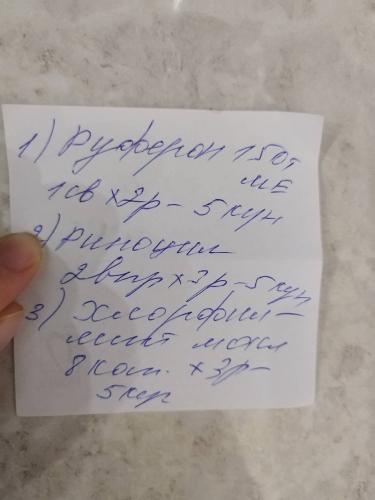 1) Руферон 150т
МЕ
1св х2р - 5 кун
2) Риноцил
2впр х3р - 5 кун
3) Хлорфил-
липт масл
8 кап. х3р -
5 кун